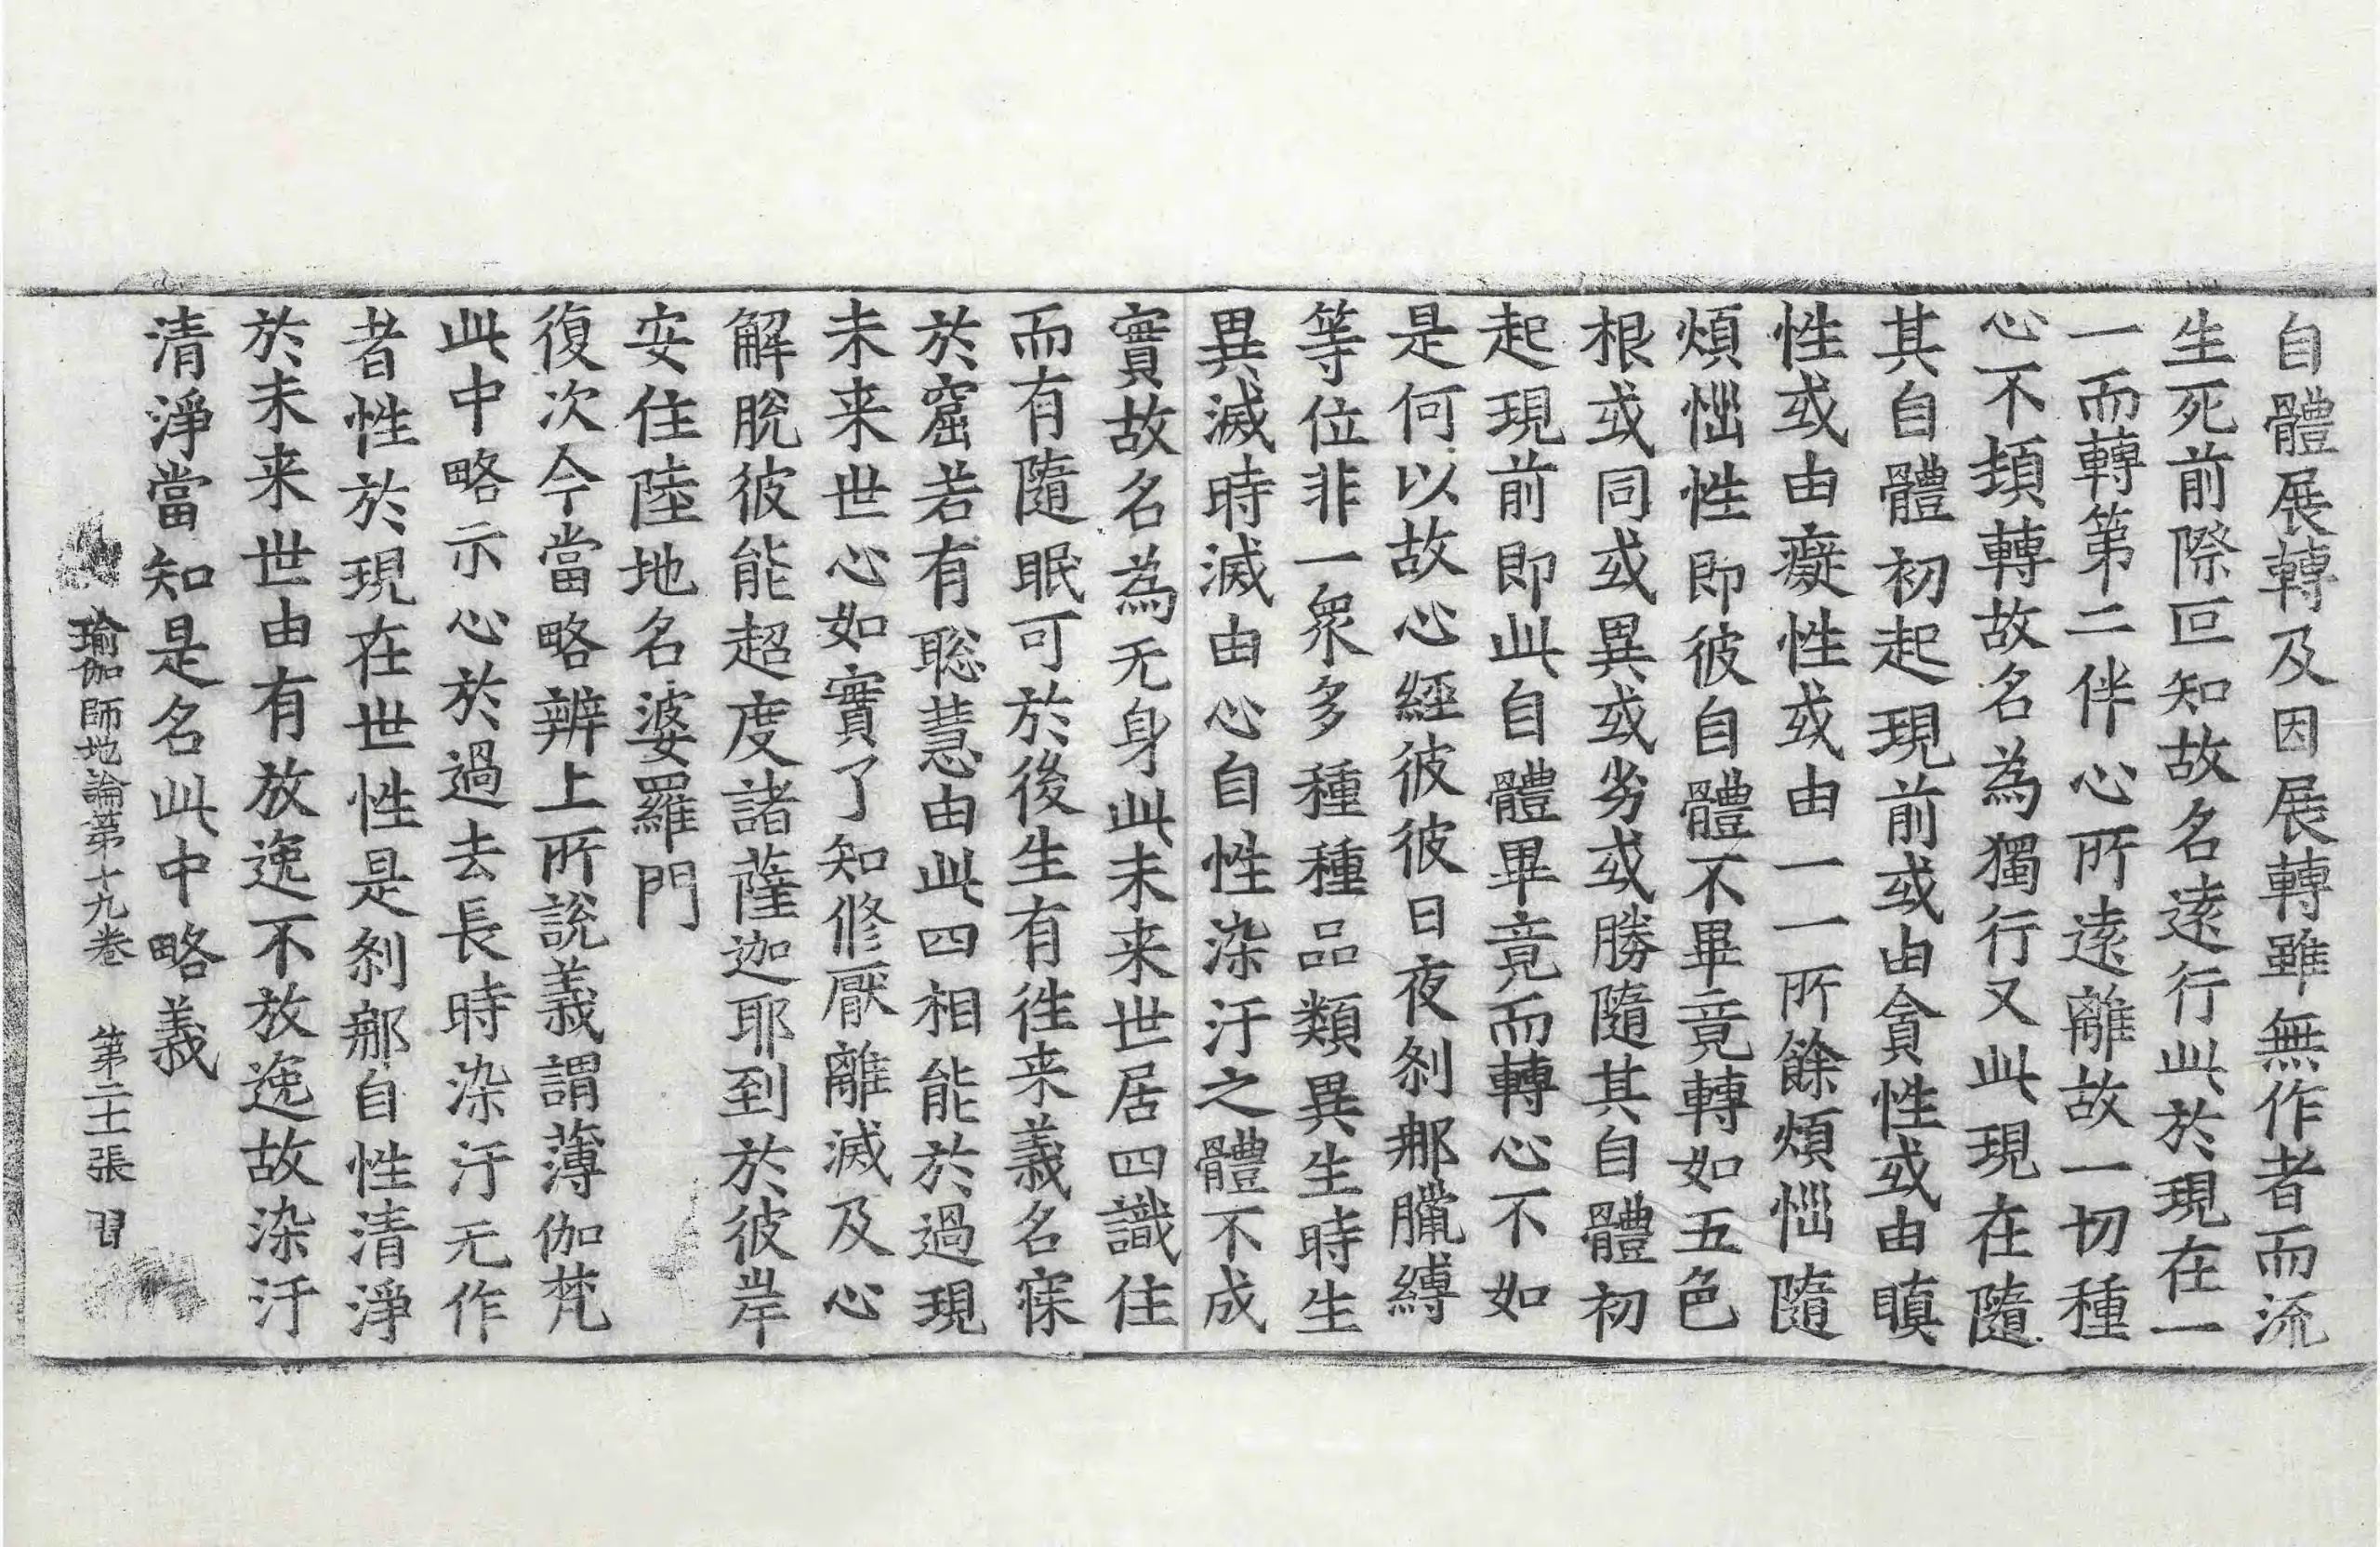 自體展轉及因展轉雖無作者而流
生死前際叵知故名遠行此於現在一
一而轉第二伴心所遠離故一切種
心不頓轉故名為獨行又此現在隨
其自體初起現前或由貪性或由瞋
性或由癡性或由一一所餘煩惱隨
煩惱性即彼自體不畢竟轉如五色
根或同或異或劣或勝隨其自體初
起現前即此自體畢竟而轉心不如
是何以故心經彼彼日夜剎那臘縛
等位非一衆多種種品類異生時生
異滅時滅由心自性染汙之體不成
實故名為无身此未来世居四識住
而有隨眠可於後生有徃来義名寐
於窟若有聡慧由此四相能於過現
未来世心如實了知修厭離滅及心
解脫彼能超度諸薩迦耶到於彼岸
安住陸地名婆羅門
復次今當略辨上所說義謂薄伽梵
此中略示心於過去長時染汙无作
者性於現在世性是剎那自性清淨
於未来世由有放逸不放逸故染汙
清淨當知是名此中略義
瑜伽師地論第十九卷 第二十張 習